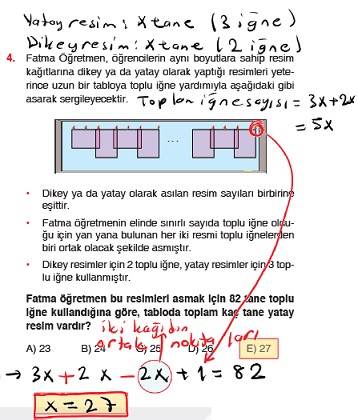 Yatay resim : x tane (3 iğne)
Dikey resim : x tane (2 iğne)
4. Fatma Öğretmen, öğrencilerin aynı boyutlara sahip resim
kağıtlarına dikey ya da yatay olarak yaptığı resimleri yete-
rince uzun bir tabloya toplu iğne yardımıyla aşağıdaki gibi
asarak sergileyecektir.
Toplam iğne sayısı = 3x+2x
= 5x
...
• Dikey ya da yatay olarak asılan resim sayıları birbirine
eşittir.
• Fatma öğretmenin elinde sınırlı sayıda toplu iğne oldu-
ğu için yan yana bulunan her iki resmi toplu iğnelerden
biri ortak olacak şekilde asmıştır.
• Dikey resimler için 2 toplu iğne, yatay resimler için 3 top-
lu iğne kullanmıştır.
Fatma öğretmen bu resimleri asmak için 82 tane toplu
iğne kullandığına göre, tabloda toplam kaç tane yatay
resim vardır?
iki kağıdın
ortak noktaları
A) 23 B) 24 C) 25 D) 26 E) 27
→ 3x + 2x - 2x + 1 = 82
x = 27